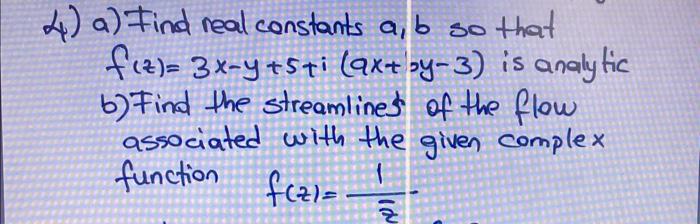 4) a) Find real constants a, b so that
f(z)= 3x-y+5+i (ax+by-3) is analytic
b) Find the streamlines of the flow
associated with the given complex
function f(z)= 1/z̄